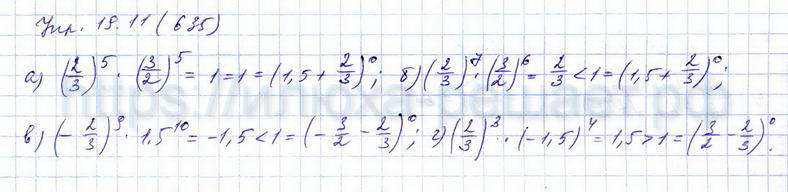 Упр. 19.11 (635)
а) (2/3)^5 · (3/2)^5 = 1 = 1 = (1,5 + 2/3)^0; б) (2/3)^7 · (3/2)^6 = 2/3 < 1 = (1,5 + 2/3)^0;
в) (- 2/3)^9 · 1,5^10 = -1,5 < 1 = (- 3/2 - 2/3)^0; г) (2/3)^3 · (-1,5)^4 = 1,5 > 1 = (3/2 - 2/3)^0.
https://илюха-решает.рф